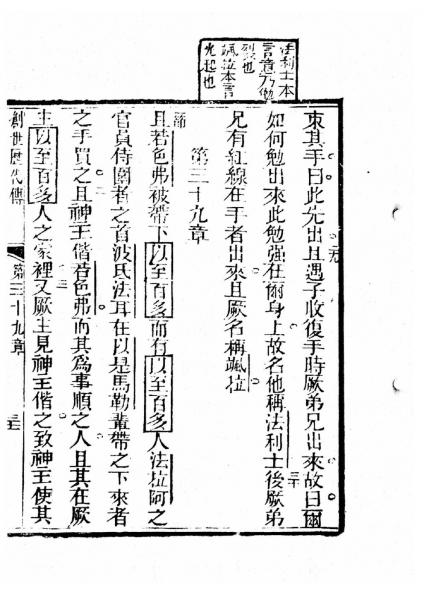 法利士本
言意乃勉
裂也
颯拉本言
光起也
束其手曰此先出且遇子收復手時厥弟兄出來故曰爾
如何勉出來此勉强在爾身上故名他稱法利士後厥弟
兄有紅線在手者出來且厥名稱颯拉
第三十九章
節
且若色弗被帶下以至百多而有以至百多人法拉阿之
官員侍圍者之首波氏法耳在以是馬勒輩帶之下來者
之手買之且神王偕若色弗而其爲事順之人且其在厥
主以至百多人之家裡又厥主見神王偕之致神王使其
創世歷代傳
第三十九章